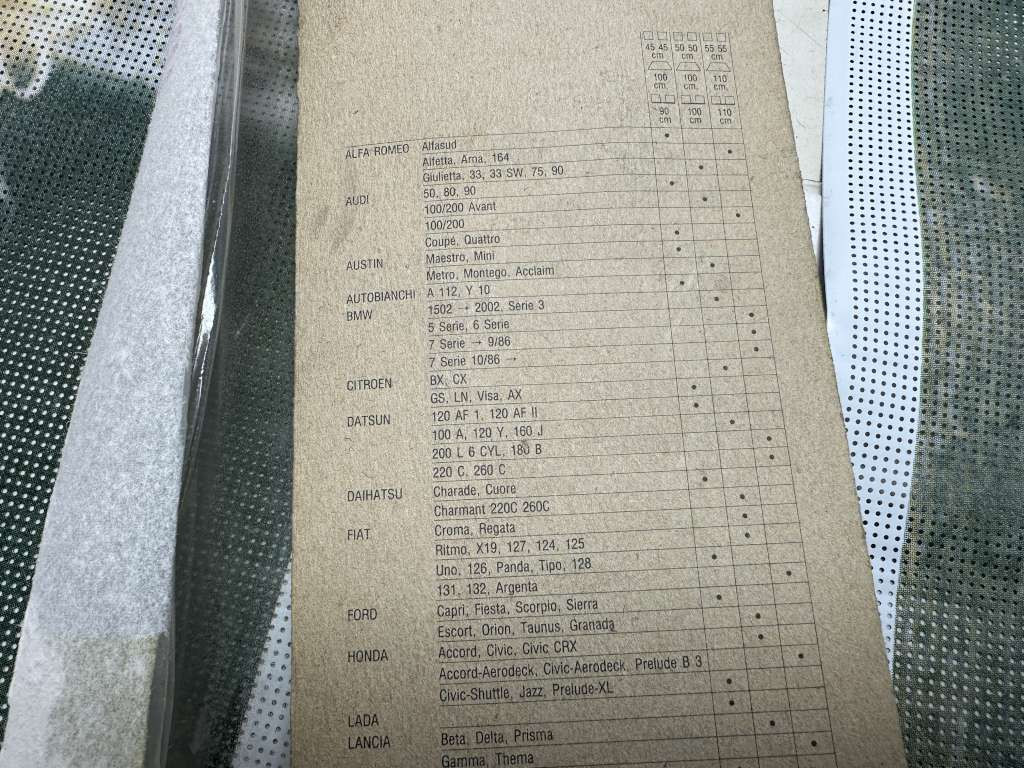 45 45 50 50 55 55
cm cm cm
100 100 110
cm. cm. cm.
90 100 110
cm cm cm
ALFA ROMEO Alfasud
Alfetta, Arna, 164
Giulietta, 33, 33 SW, 75, 90
AUDI 50, 80, 90
100/200 Avant
100/200
Coupé, Quattro
AUSTIN Maestro, Mini
Metro, Montego, Acclaim
AUTOBIANCHI A 112, Y 10
BMW 1502 → 2002, Serie 3
5 Serie, 6 Serie
7 Serie → 9/86
7 Serie 10/86 →
CITROEN BX, CX
GS, LN, Visa, AX
DATSUN 120 AF 1, 120 AF II
100 A, 120 Y, 160 J
200 L 6 CYL, 180 B
220 C, 260 C
DAIHATSU Charade, Cuore
Charmant 220C 260C
FIAT Croma, Regata
Ritmo, X19, 127, 124, 125
Uno, 126, Panda, Tipo, 128
131, 132, Argenta
FORD Capri, Fiesta, Scorpio, Sierra
Escort, Orion, Taunus, Granada
HONDA Accord, Civic, Civic CRX
Accord-Aerodeck, Civic-Aerodeck, Prelude B 3
Civic-Shuttle, Jazz, Prelude-XL
LADA
LANCIA Beta, Delta, Prisma
Gamma, Thema